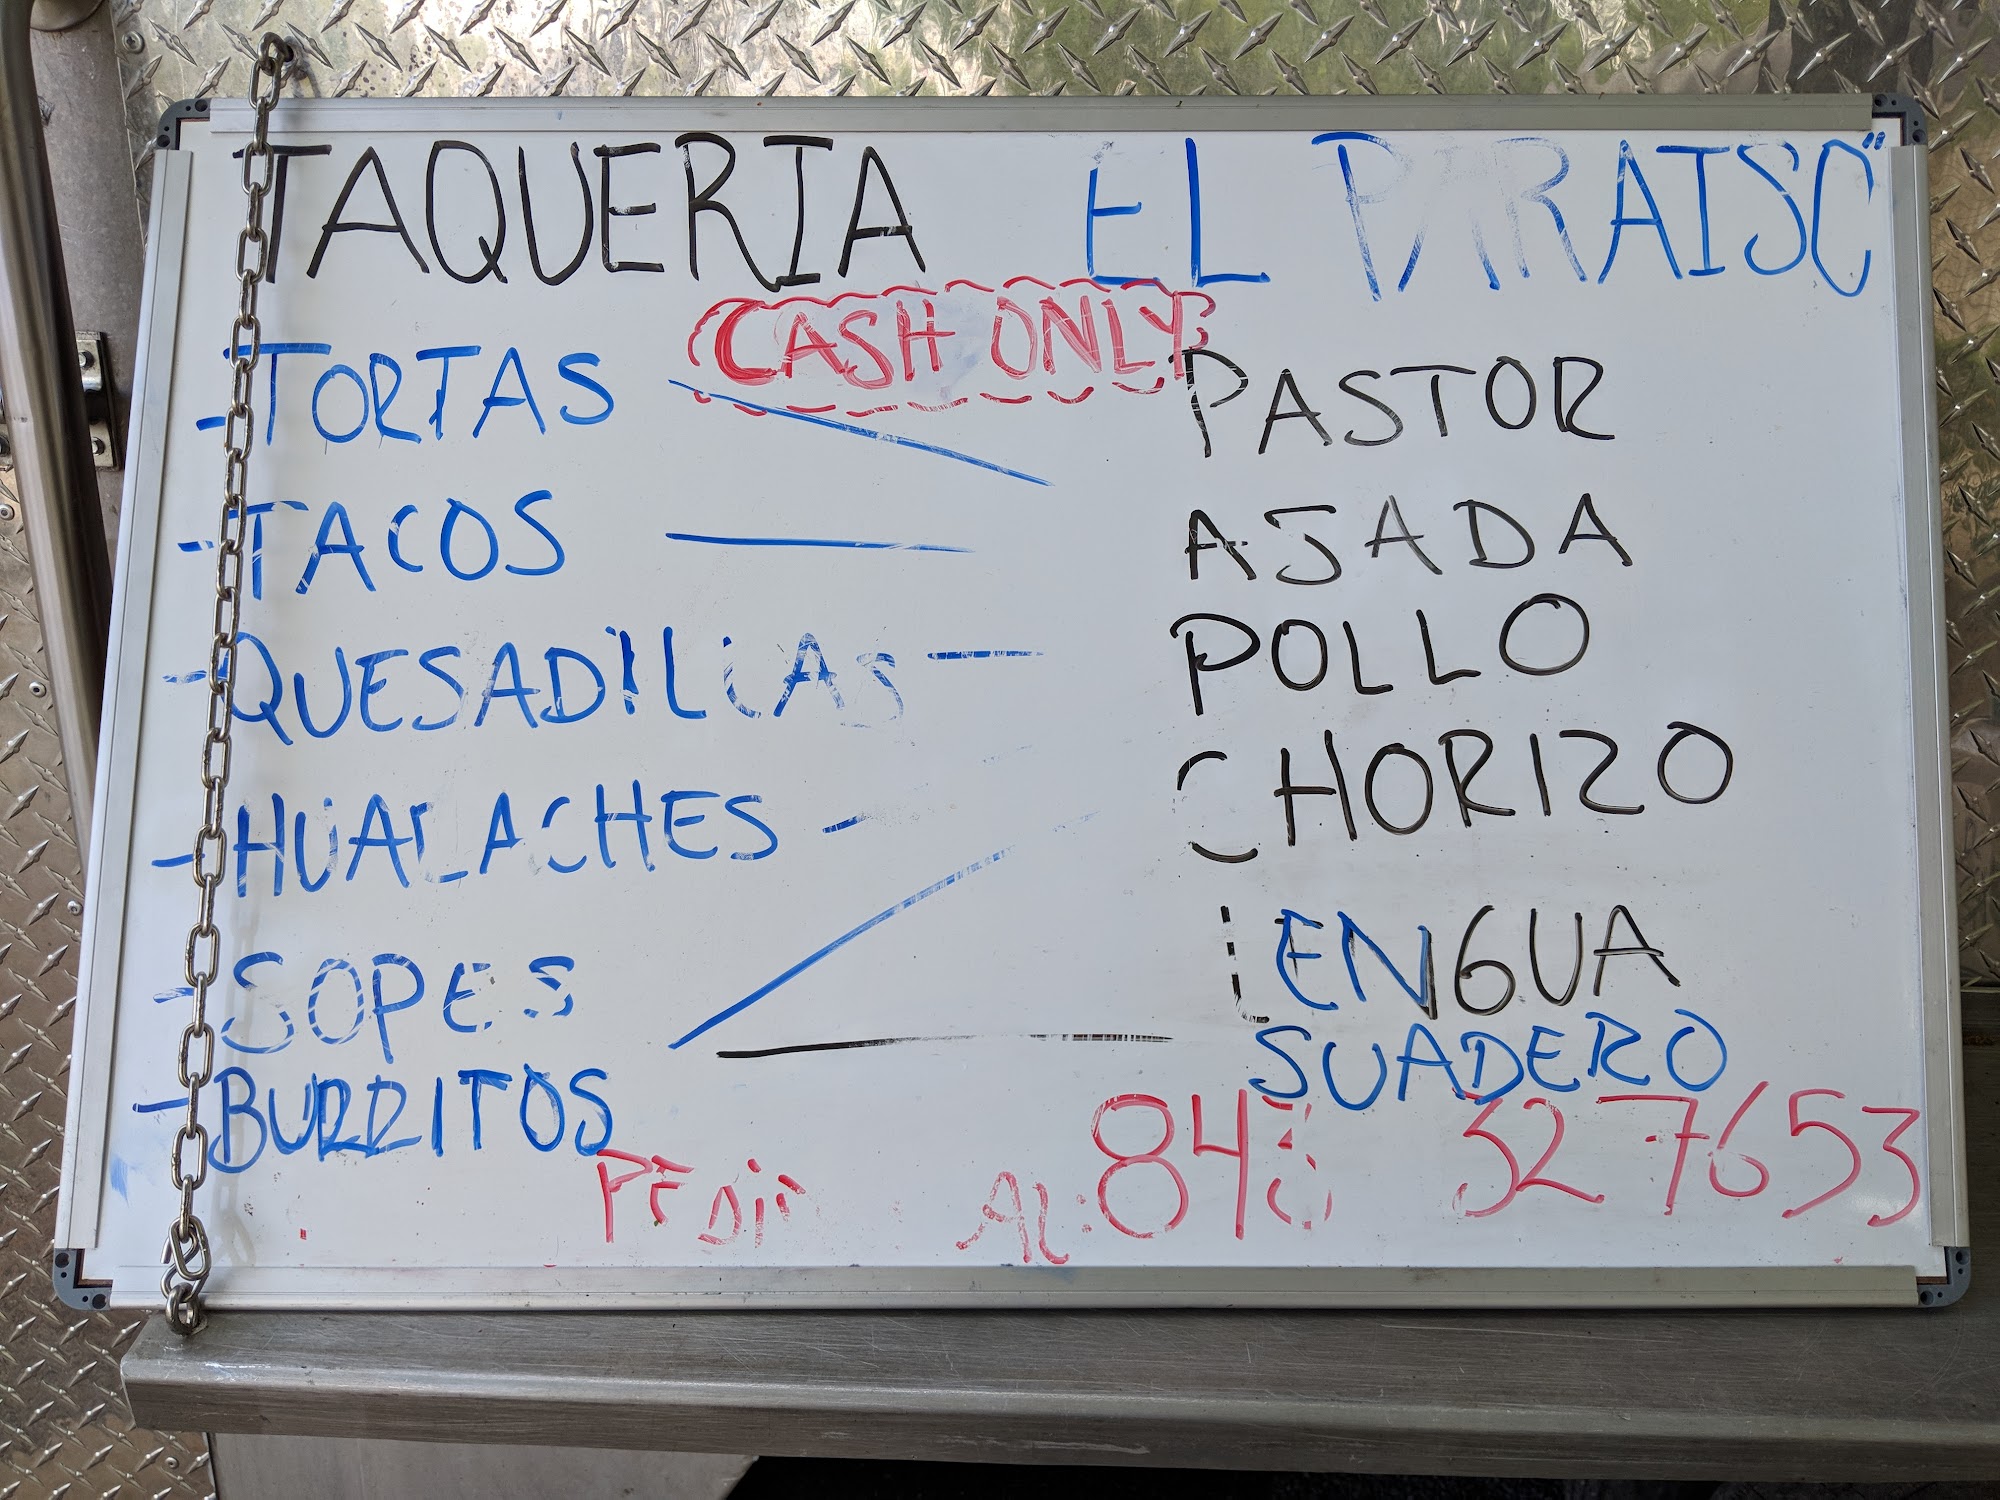 TAQUERIA EL PARAISO"
CASH ONLY
-TORTAS
-TACOS
-QUESADILLAS
-HUALACHES
-SOPES
-BURRITOS
PASTOR
ASADA
POLLO
CHORIZO
LENGUA
SUADERO
PEDIR AL: 843 327653